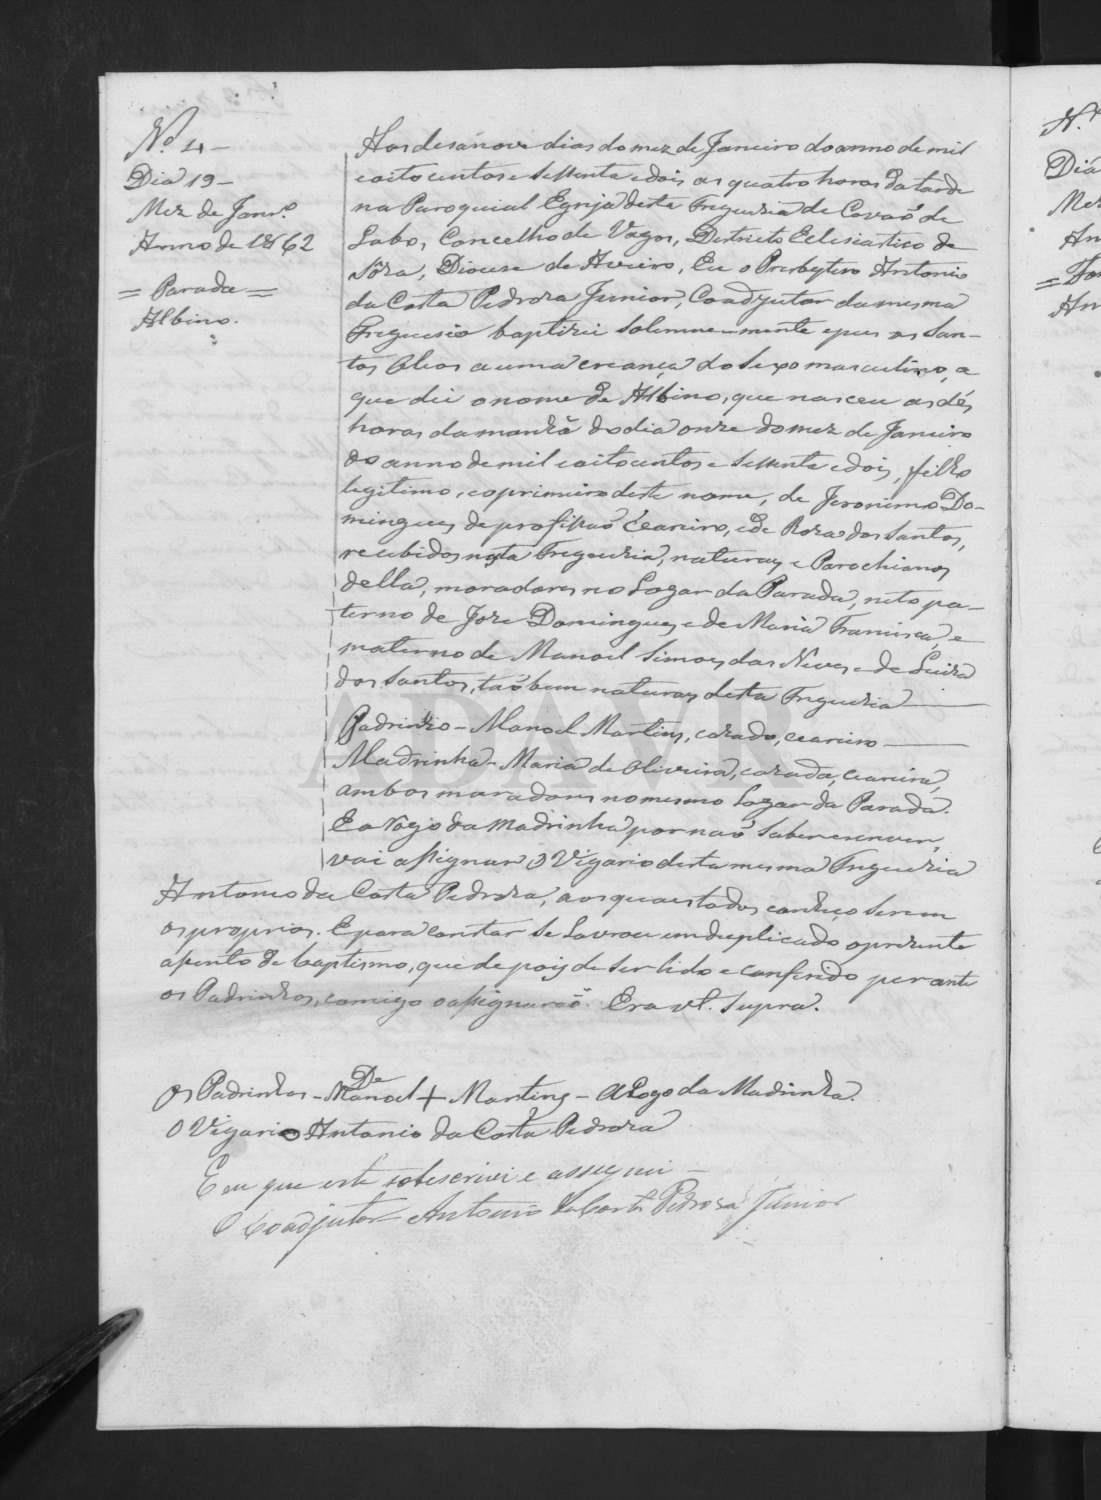 Nº 4 -
Dia 19 -
Mez de Janrº
Anno de 1862
= Parada =
Albino.
Aos desánove dias do mez de Janeiro do anno de mil
eoitocentos e sessenta edois as quatro horas da tarde
na Paroquial Egreja deste Freguezia de Covaõ de
Lobo, Concelho de Vagos, Destricto Eclesiastico de
Sôza, Diocese de Aveiro, Eu o Presbytero Antonio
da Costa Pedroza Junior, Coadjutor da mesma
Freguesia baptizei solemne-mente epuz os San-
tos Oleos a uma creança do sexo masculino, a
que dei o nome de Albino, que nasceu as dés
horas da manhã do dia onze do mez de Janeiro
do anno de mil eoitocentos e sessenta edois, filho
legitimo, e o primeiro deste nome, de Jeronimo Do-
mingues de profissaõ Ceareiro, e de Roza dos Santos,
recebidos nesta Freguezia, naturaes e Parochianos
della, moradores no Logar da Parada, neto pa-
terno de Joze Domingues e de Maria Francisca, e
materno de Manoel Simoes das Neves e de Luiza
dos Santos, taõbem naturaes desta Freguezia
Padrinho - Manoel Martins, cazado, ceareiro
Madrinha - Maria de Oliveira, cazada, ceareira,
ambos moradores no mesmo Logar da Parada.
E a rogo da Madrinha por naõ saber escrever,
vai assignar o Vigario desta mesma Freguezia
Antonio da Costa Pedroza, aos quaes todos conheço serem
os proprios. E para constar se lavrou em duplicado o prezente
assento de baptismo, que depois de ser lido e conferido perante
os Padrinhos, comigo o assignaraõ. Era ut. supra.
Os Padrinhos - Manoel + Martins - A Rogo da Madrinha.
De
O Vigario Antonio da Costa Pedroza
E eu que este sobescrivi e assignei -
O Coadjutor Antonio da Costa Pedroza Junior
ADAVR
N.º
Dia
Mez
An